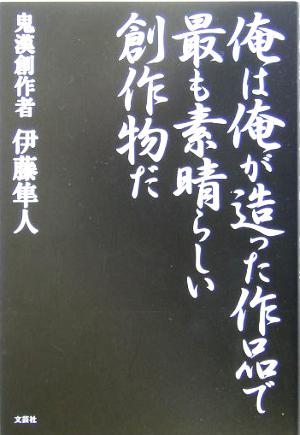 俺は俺が造った作品で
最も素晴らしい
創作物だ
鬼漢創作者 伊藤隼人
文芸社